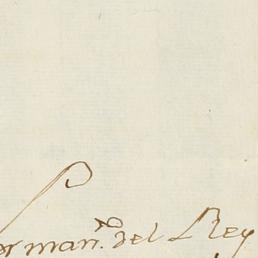 Por man.do del Rey